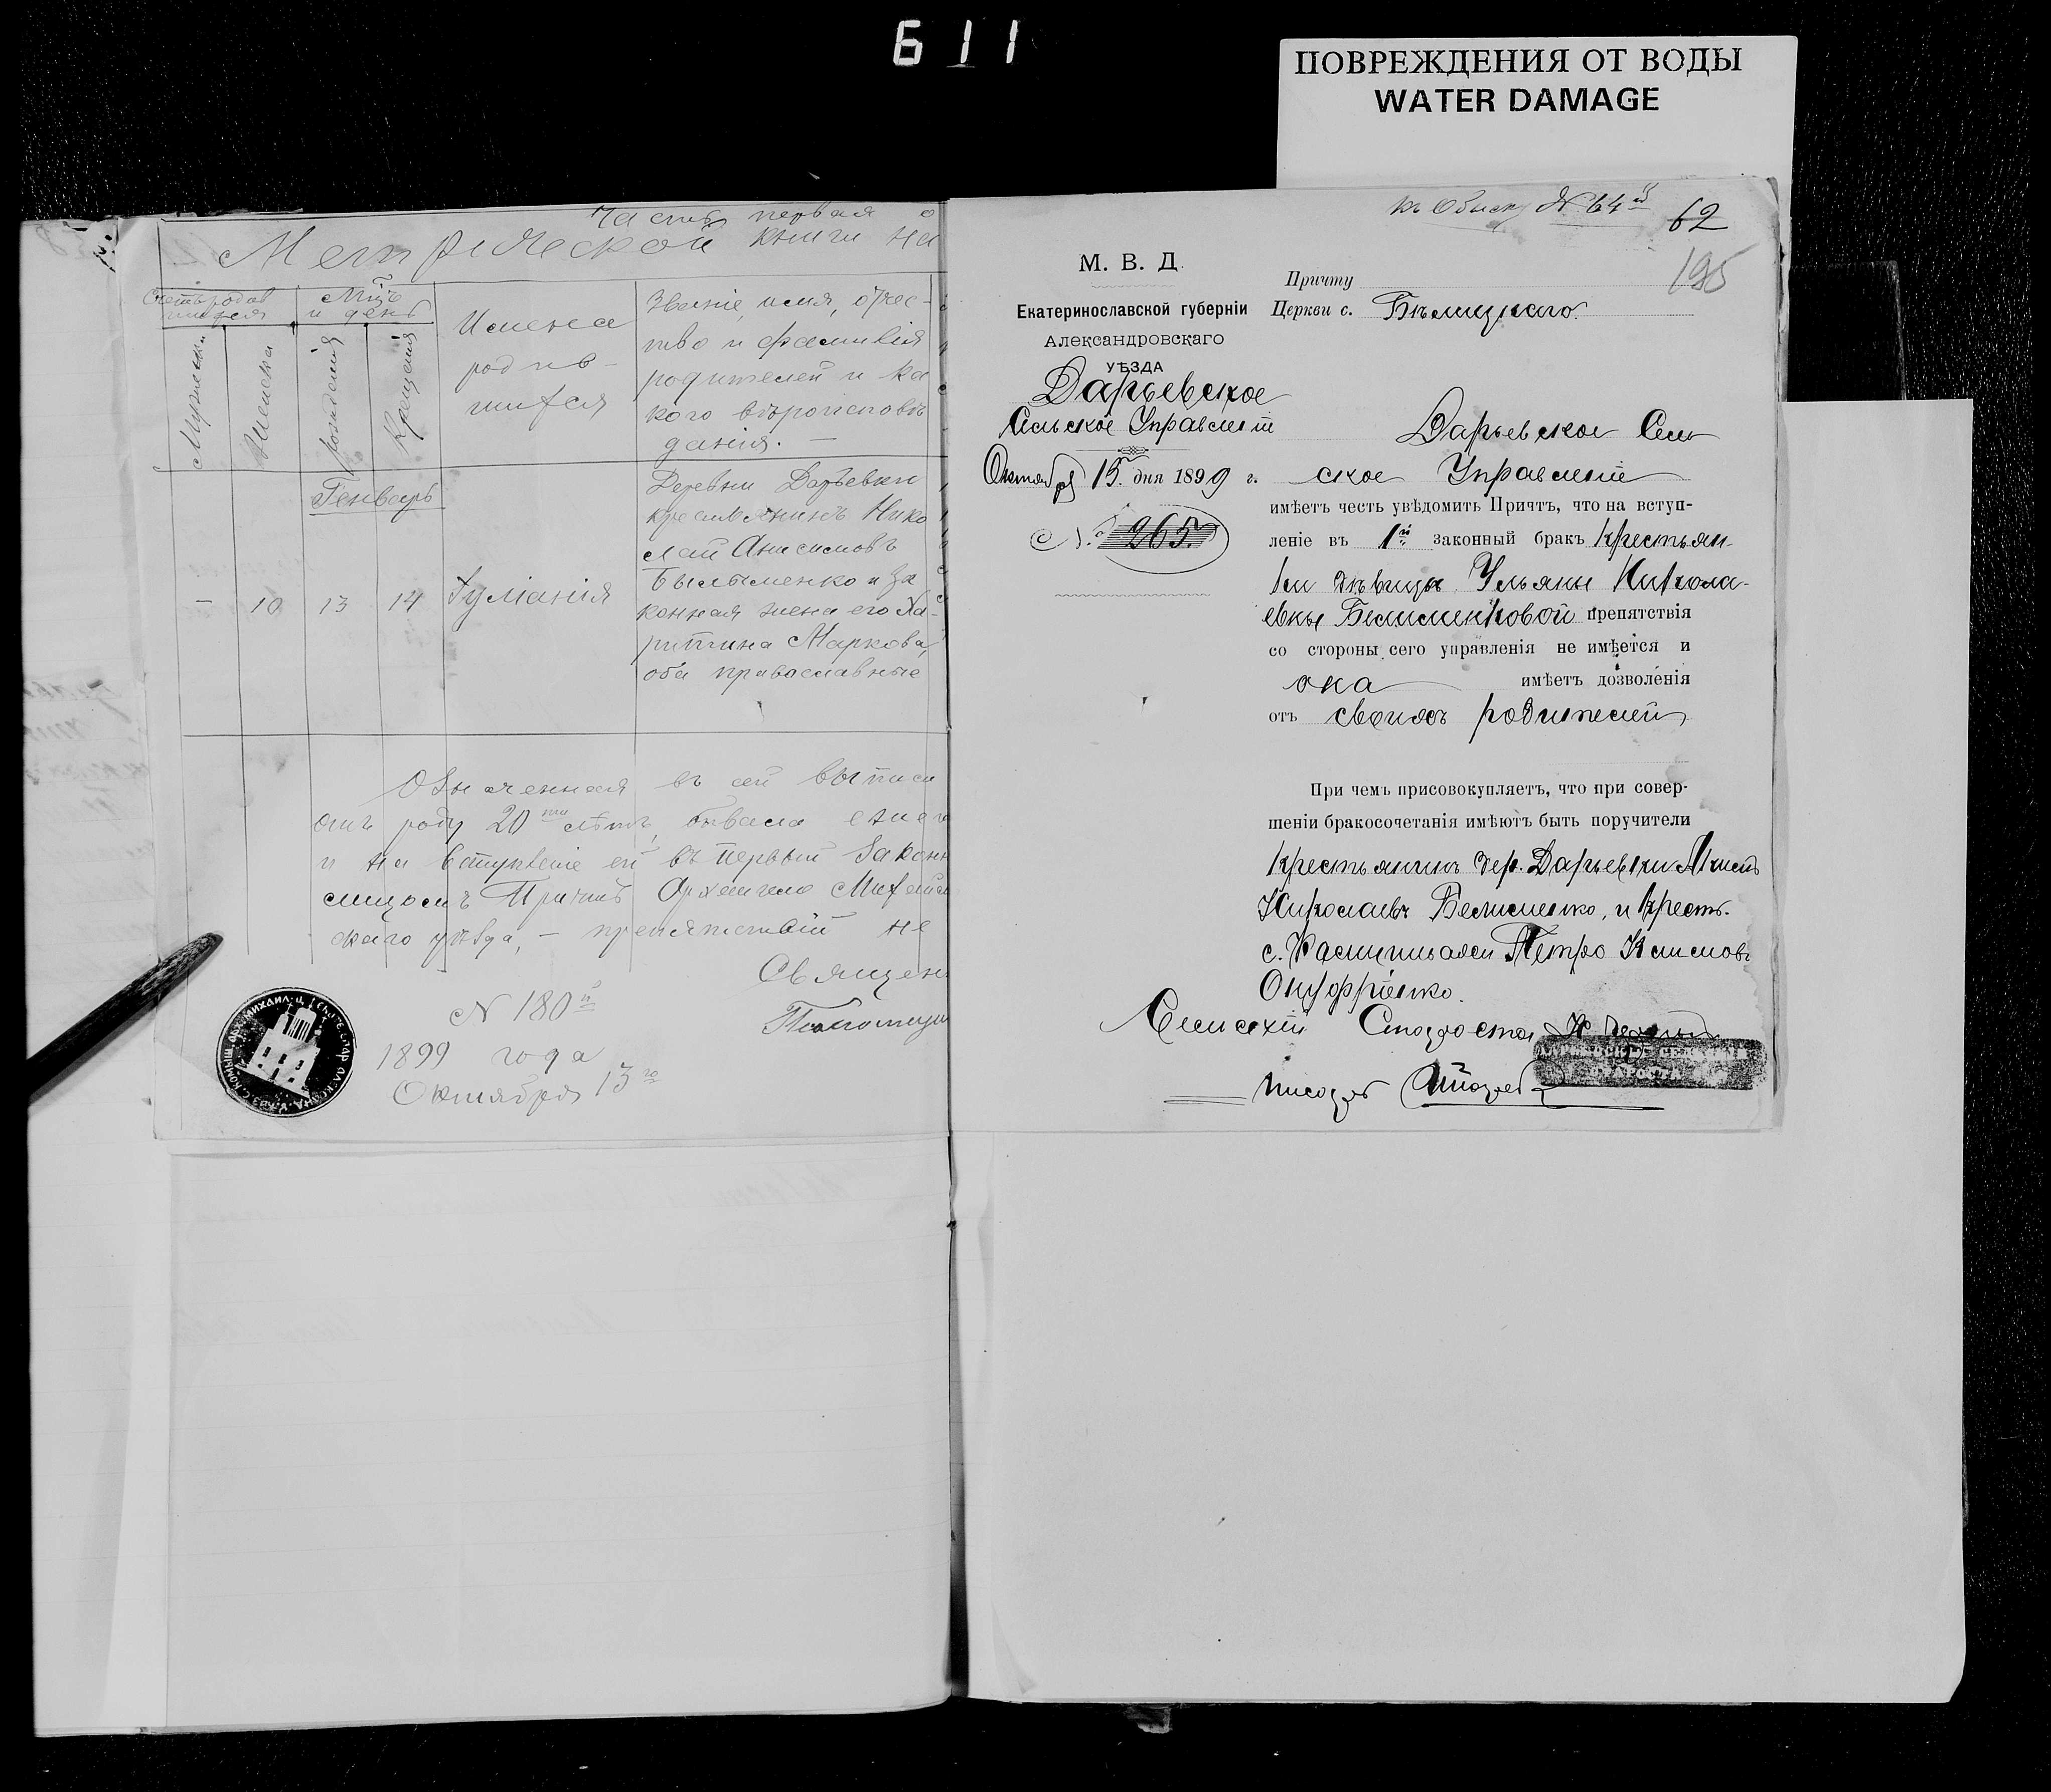 611
ПОВРЕЖДЕНИЯ ОТ ВОДЫ
WATER DAMAGE
Часть первая о
Метрической книги на
Счетъ родив
шихся
Мѣц.
и день
Мужеска
Женска
рождения
Крещенія
Имена
родив-
шихся
Званіе, имя, отчес-
тво и фамилія
родителей и ка
кого вѣроисповѣ
данія. —
Генварь
– 10 13 14
Іуліанія
Деревни Дарьевки
крестьянинъ Нико
лай Анисимовъ
Билыменко и за
конная жена его Ха-
ритина Маркова,
оба православные
Означенная въ сей выписи
отъ роду 20ти лѣтъ, бывала ежего
и на вступленіе ей въ первый законн
Причтъ Архангело Михайл
скаго уѣзда, – препятствій не
Священ
N 180й
1899 года
Октября 13го
къ Обыску № 64й
62
195
М. В. Д.
Екатеринославской губерніи
Александровскаго
УѢЗДА
Дарьевское
Сельское Управленіе
Октября 15 дня 1899 г.
№ 265
Причту
Церкви с. Бѣлицкаго.
Дарьевское Сель
ское Управленіе
имѣетъ честь увѣдомить Причтъ, что на вступ-
леніе въ 1й законный бракъ крестьян-
ки дѣвицы Ульяны Никола-
евны Белименковой препятствія
со стороны сего управленія не имѣется и
она имѣетъ дозволенія
отъ своихъ родителей
При чемъ присовокупляетъ, что при совер-
шеніи бракосочетанія имѣютъ быть поручители
Крестьянинъ дер. Дарьевки
Николаевъ Белименко, и Крест.
с. Петро Климовъ
Онуфріенко.
Сельскій Староста
СТАРОСТА
писарь